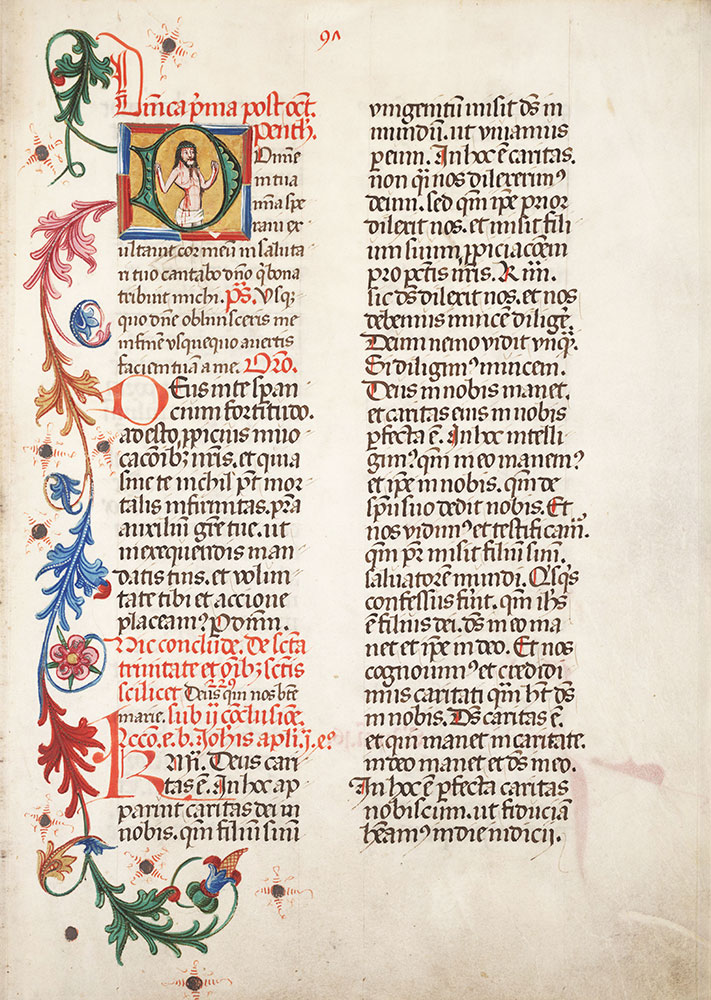 97
Dnica p̄ma post oct̄.
Penth̄.
Domine
in tua
mīa spe
raui ex
ultauit cor meum in saluta
ri tuo cantabo dn̄o q̄ bona
tribuit michi. p̄s. Vsq̨
quo dn̄e obliuisceris me
in finem vsquequo auertis
faciem tuam a me. Oro.
Deus in te speran
cium fortitudo.
adesto ꝓpicius inuo
cacōibꝫ nr̄is. et quia
sine te nichil pōt mor
talis infirmitas. pr̄a
auxilium gr̄e tue. ut
in exequendis man
datis tuis. et volun
tate tibi et accione
placeam⁹. P dn̄m.
Hic conclude. de sc̄ta
trinitate et oībꝫ sc̄tis
scilicet Deus qui nos bt̄e
marie. sub ij cōclusiōe.
Lcc̄o. e. b. Ioh̄is apl̄i. j. e⁹
Kar̄i. Deus cari
tas ē. In hoc ap
paruit caritas dei in
nobis. qm̄ filium suū
vnigenitū misit ds̄ in
mundū. ut viuamus
per eum. In hoc ē caritas.
non q̄i nos dilexerim⁹
deum. sed qm̄ ip̄e prior
dilexit nos. et misit fili
um suum. ꝓpiciacōem
pro pctīs nr̄is. Kr̄i.
sic ds̄ dilexit nos. et nos
debemus inuicē diligēr̄.
Deum nemo vidit vnq̄.
Si diligim⁹ inuicem.
Deus in nobis manet.
et caritas eius in nobis
ꝑfecta ē. In hoc intelli
gim⁹ qm̄ in eo manem⁹
et ip̄e in nobis. qm̄ de
sp̄u suo dedit nobis. Et
nos vidim⁹ et testificam̄.
qm̄ pr̄ misit filiū suū.
saluatorē mundi. Qsq̨s
confessus fūit. qm̄ ih̄s
ē filius dei. ds̄ in eo ma
net et ip̄e in deo. Et nos
cognouim⁹ et credidi
mus caritati quā ht̄ ds̄
in nobis. Ds̄ caritas ē.
et qui manet in caritate.
in deo manet et ds̄ in eo.
In hoc ē ꝑfecta caritas
nobiscum. ut fiduciā
hēam⁹ in die iudicii.